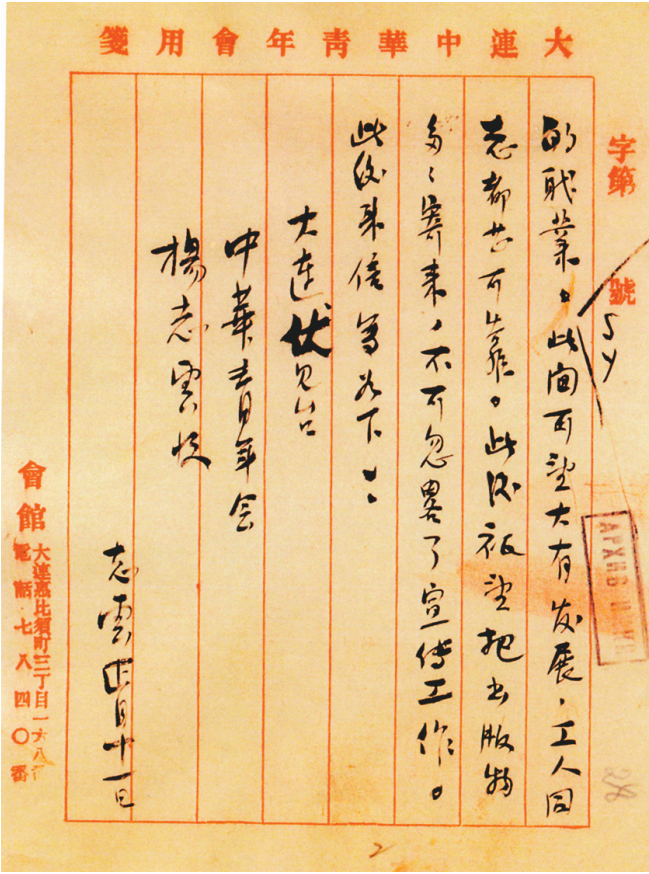 大連中華青年會用箋
字第 號
54
的职業。此间可望大有发展，工人同
志都甚可靠。此後祗望把出版物
多々寄来，不可忽畧了宣传工作。
此後来信写如下：
大连伏見台
中華青年会
楊志雲收
志雲 正月十一日
會館
大連惠比須町三丁目一六八
電話七八四〇番
АРХИВ
28
2